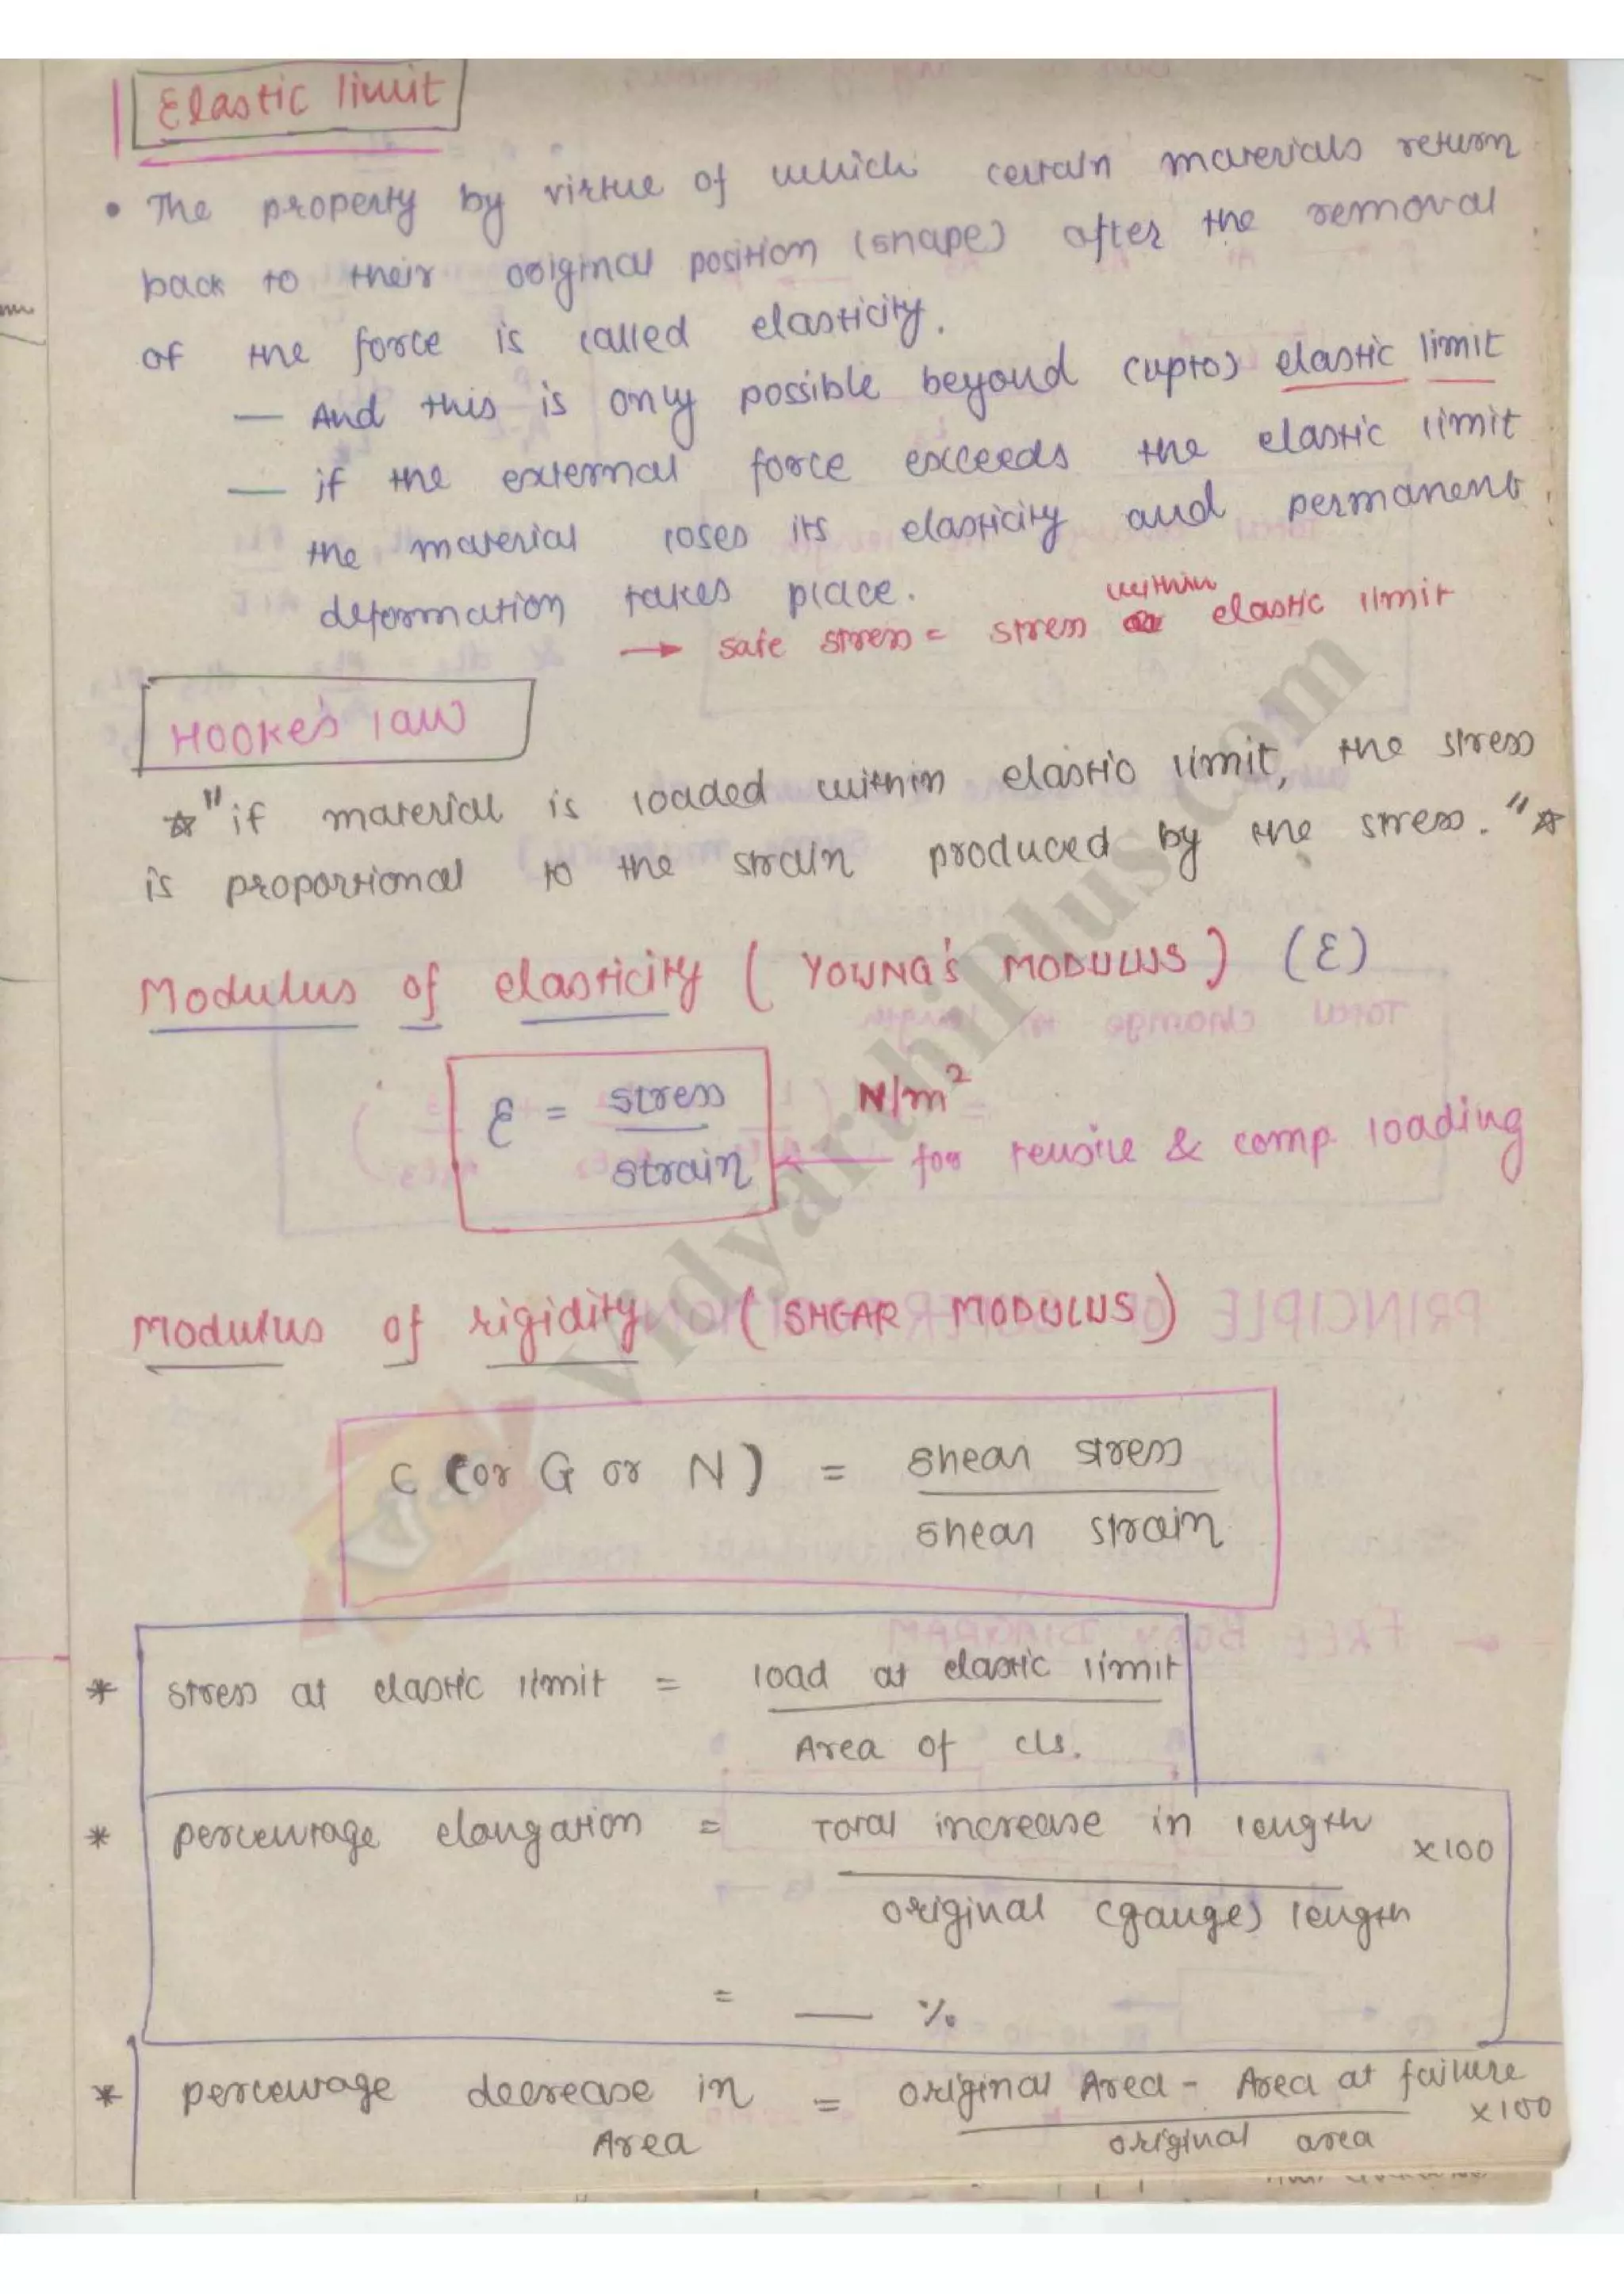 Elastic limit
• The property by virtue of which certain materials return
back to their original position (shape) after the removal
of the force is called elasticity.
— And this is only possible beyond (upto) elastic limit
— if the external force exceeds the elastic limit
the material loses its elasticity and permanent
deformation takes place.
→ safe stress = stress within elastic limit
Hooke's law
☆ "if material is loaded within elastic limit, the stress
is proportional to the strain produced by the stress." ☆
Modulus of elasticity ( YOUNG'S MODULUS ) (E)
E = stress / strain N/m²
← for tensile & comp. loading
Modulus of rigidity (SHEAR MODULUS)
C (or G or N) = shear stress / shear strain
* stress at elastic limit = load at elastic limit / Area of c/s.
* percentage elongation = Total increase in length / original (gauge) length ×100
= — %.
* percentage decrease in Area = original Area - Area at failure / original area ×100
VidyarthiPlus.com
TOTAL change in length
PRINCIPLE OF SUPER POSITION
FREE BODY DIAGRAM